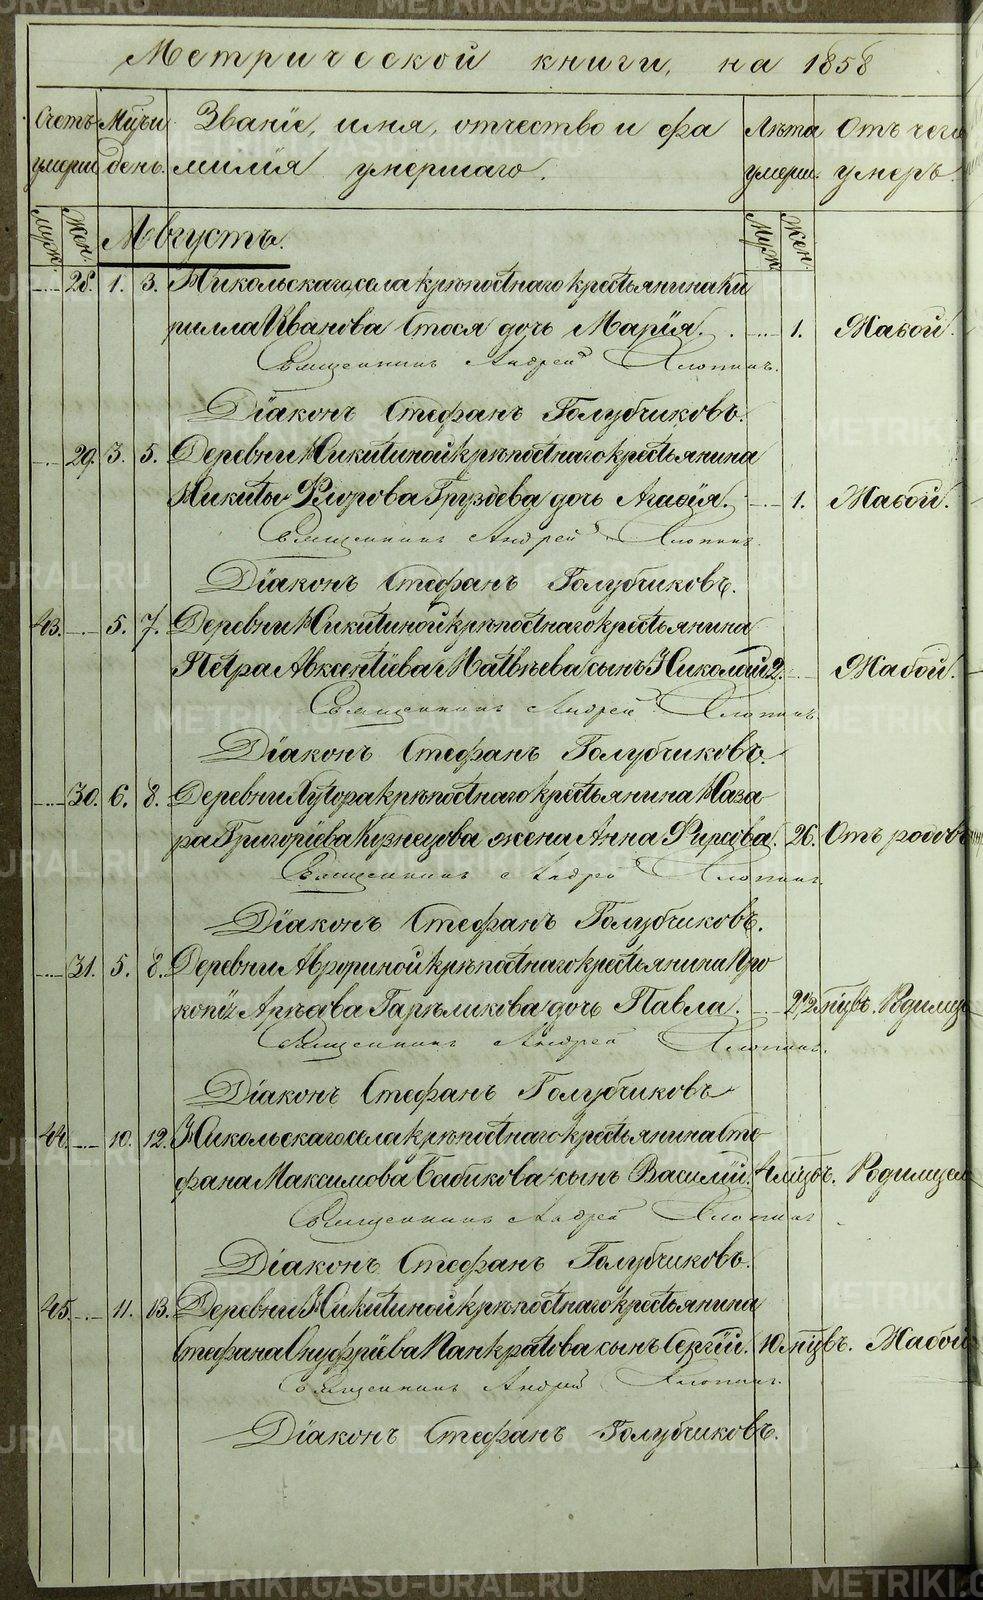 METRIKI.GASO-URAL.RU
Метрической книги, на 1858
Счетъ Мцъи Званіе, имя, отчество и фа Лѣта Отъ чего
умерш. день. милія умершаго. умерш. умеръ.
муж. жен. Августъ. Муж. жен.
28. 1. 3. Никольскаго села крѣпостнаго крестьянина Ки
рилла Иванова дочь Марія. 1. Жабой.
Священникъ Андрей Хлопинъ.
Діаконъ Стефанъ Голубчиковъ.
29. 3. 5. Деревни Никитиной крѣпостнаго крестьянина
Никиты Флорова Груздева дочь Агафія. 1. Жабой.
Священникъ Андрей Хлопинъ.
Діаконъ Стефанъ Голубчиковъ.
43. 5. 7. Деревни Никитиной крѣпостнаго крестьянина
Петра Авксентіева Матвѣева сынъ Николай 2. Жабой.
Священникъ Андрей Хлопинъ.
Діаконъ Стефанъ Голубчиковъ.
30. 6. 8. Деревни Хутора крѣпостнаго крестьянина Наза
ра Григоріева Кузнецова жена Анна Фирсова. 26. Отъ родовъ
Священникъ Андрей Хлопинъ.
Діаконъ Стефанъ Голубчиковъ.
31. 5. 8. Деревни Авророриной крѣпостнаго крестьянина Про
копія Арѣева Гарѣликова дочь Павла. 2 1/2 мцъ. Родимцемъ
Священникъ Андрей Хлопинъ.
Діаконъ Стефанъ Голубчиковъ
44. 10. 12. Никольскаго села крѣпостнаго крестьянина Сте
фана Максимова Бабикова сынъ Василій. 4 мцъ. Родимцем
Священникъ Андрей Хлопинъ
Діаконъ Стефанъ Голубчиковъ.
45. 11. 13. Деревни Никитиной крѣпостнаго крестьянина
Стефана Онуфріева Панкратова сынъ Сергій. 10 мцъ. Жабой
Священникъ Андрей Хлопинъ.
Діаконъ Стефанъ Голубчиковъ.
METRIKI.GASO-URAL.RU